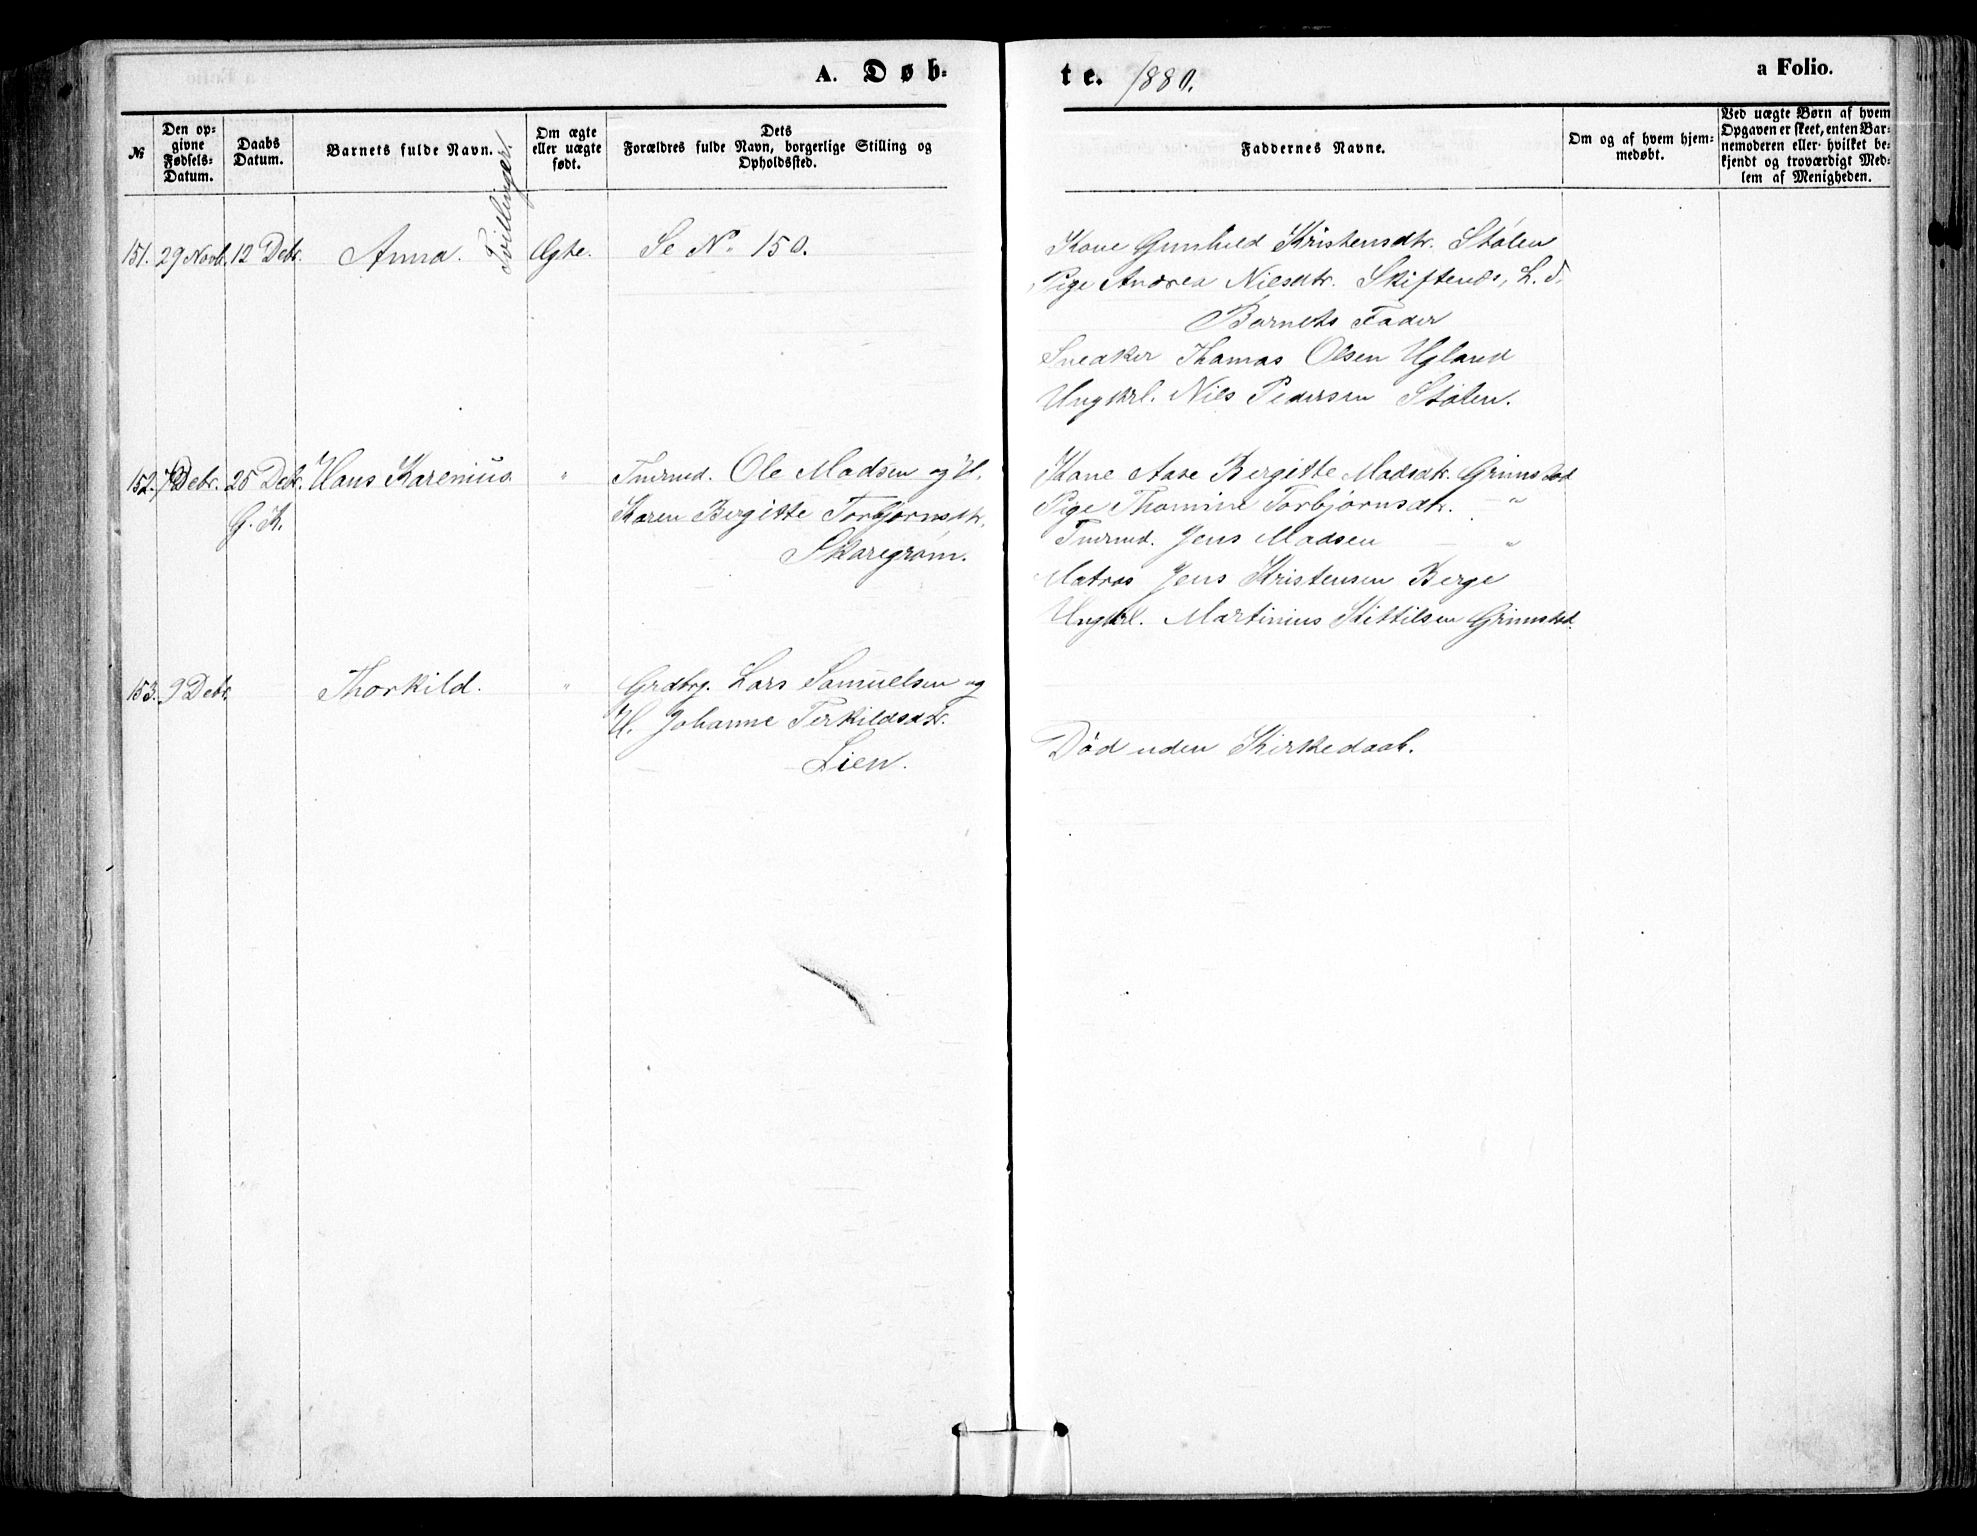 A. Døb-
te. 1880.
a Folio.
№
Den op-
givne
Fødsels-
Datum.
Daabs
Datum.
Barnets fulde Navn.
Om ægte
eller uægte
født.
Dets
Forældres fulde Navn, borgerlige Stilling og
Opholdssted.
Faddernes Navne.
Om og af hvem hjem-
medøbt.
Ved uægte Børn af hvem
Opgaven er skeet, enten Bar-
nemoderen eller hvilket be-
kjendt og troværdigt Med-
lem af Menigheden.
151. 29 Novb. 12 Debr. Anna. Tvillinger. Ægte. Se No 150.
Kone Gunhild Kristensdtr. Stølen
Pige Andrea Nielsdtr. Skiftenes, L. S.
Barnets Fader
Snedker Thomas Olsen Ugland
Ungkrl. Nils Pedersen Stølen.
152. 7 Debr. 25 Debr. Hans Karenius. " Tmrmd. Ole Madsen og H.
G. K. Karen Bergitte Torbjørnsdtr.
Skaregrøm.
Kone Aase Bergitte Madsdtr. Grimstad
Pige Thomine Torbjørnsdtr. — "
Tmrmd. Jens Madsen — "
Matros Jens Kristensen Berge
Ungkrl. Martinius Kittilsen Grimstad.
153. 9 Debr. Thorkild. " Grdbrg. Lars Samuelsen og
H. Johanne Terkildsdtr.
Lien.
Død uden Kirkedaab.